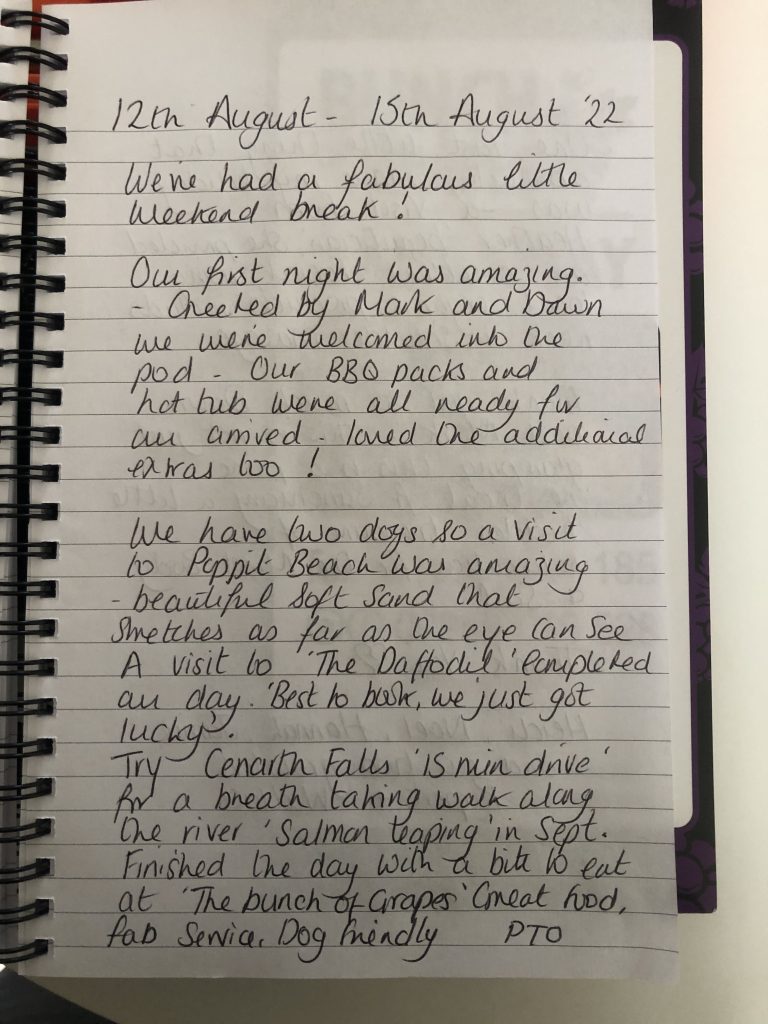 12th August - 15th August '22
We've had a fabulous little
weekend break!
Our first night was amazing.
- Greeted by Mark and Dawn
we were welcomed into the
pod - Our BBQ packs and
hot tub were all ready for
our arrived - loved the additional
extras too!
We have two dogs so a visit
to Poppit Beach was amazing
- beautiful soft sand that
stretches as far as the eye can see
A visit to 'The Daffodil' completed
our day. 'Best to book, we just got
lucky'.
Try Cenarth Falls '15 min drive'
for a breath taking walk along
the river 'Salmon leaping' in Sept.
Finished the day with a bite to eat
at 'The bunch of Grapes' Great food,
fab service, Dog friendly PTO